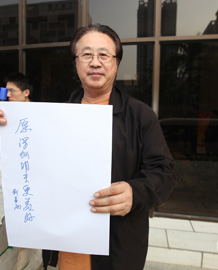 愿深圳明天更美好